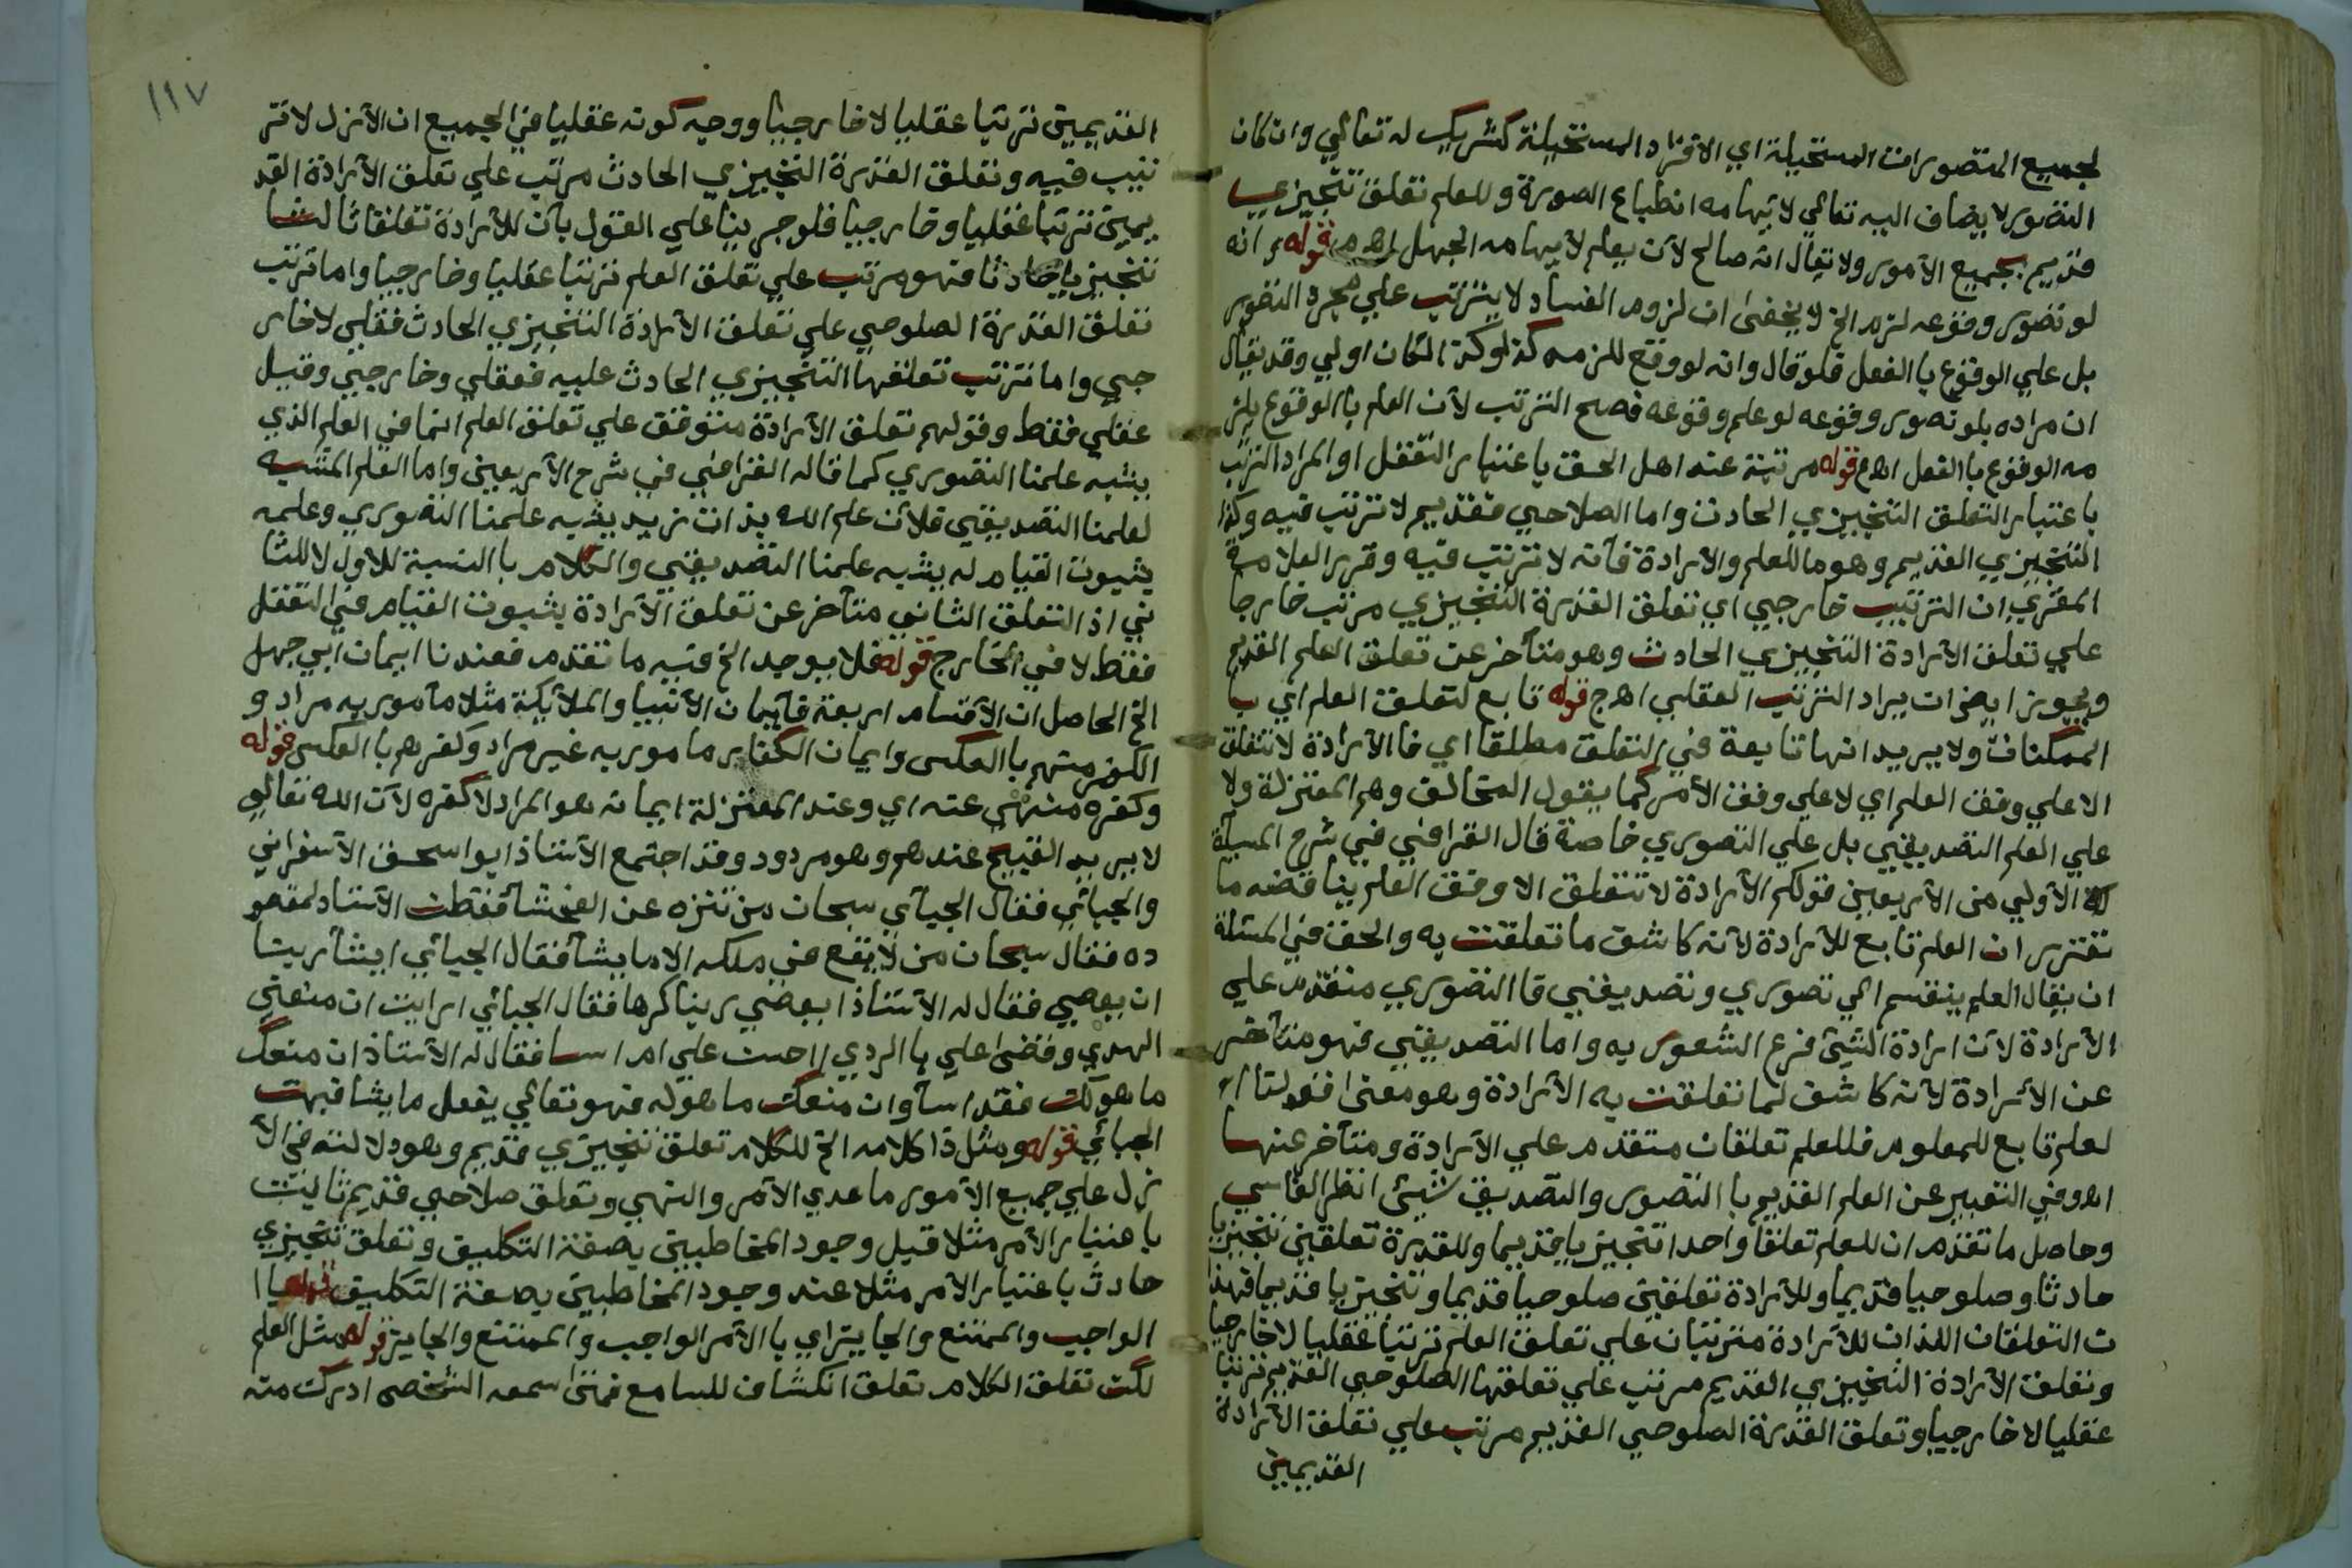 لجميع المتصورات المستحيلة اي الافراد المستحيلة كشريك له تعالي وان كان
التصور لا يضاف اليه تعالي لايهامه انطباع الصورة وللعلم تعلق تنجيزي
قديم بجميع الأمور ولا يقال انه صالح لأن يعلم لايهامه الجهل اهم قوله وانه
لو تصور وقوعه لزم الخ لا يخفى ان لزوم الفساد لا يترتب علي مجرد التصور
بل علي الوقوع بالفعل فلو قال وانه لو وقع للزمه كذا وكذا لكان اولي وقد يقال
ان مراده بلو تصور وقوعه لو علم وقوعه فصح الترتب لأن العلم بالوقوع يلز
مه الوقوع بالفعل اهم قوله مرتبة عند اهل الحق باعتبار التعقل او المراد الترتب
باعتبار التعلق التنجيزي الحادث واما الصلاحي فقديم لا ترتب فيه وكذا
التنجيزي القديم وهو ما للعلم والارادة فأنه لا ترتب فيه وقرر العلامة
المقري ان الترتيب خارجي اي تعلق القدرة التنجيزي مرتب خارجا
علي تعلق الأرادة التنجيزي الحادث وهو متأخر عن تعلق العلم القديم
ويجوز ايضا ان يراد الترتب العقلي اهج قوله تابع لتعلق العلم اي با
الممكنات ولا يريد انها تابعة في التعلق مطلقا اي فالأرادة لا تتعلق
الا علي وفق العلم اي لا علي وفق الأمر كما يقول المخالف وهم المعتزلة ولا
علي العلم التصديقي بل علي التصوري خاصة قال القرافي في شرح المسألة
الأولي من الأربعين قولكم الأرادة لا تتعلق الا وفق العلم يناقضه ما
تقرر ان العلم تابع للأرادة لأنه كاشف ما تعلقت به والحق في المسئلة
ان يقال العلم ينقسم الي تصوري وتصديقي فا التصوري متقدم علي
الأرادة لأن ارادة الشيئ فرع الشعور به واما التصديقي فهو متأخر
عن الأرادة لأنه كاشف لما تعلقت به الأرادة وهو معنى قولنا ا
لعلم تابع للمعلوم فللعلم تعلقان متقدم علي الأرادة ومتأخر عنها
اهـ وفي التعبير عن العلم القديم با التصور والتصديق شيئ انظر الفاسي
وحاصل ما تقدم ان للعلم تعلقا واحدا تنجيزيا قديما وللقدرة تعلقين تنجيزيا
حادثا وصلوحيا قديما وللأرادة تعلقين صلوحيا قديما وتنجيزيا قديما فهذا
ن التعلقان اللذان للأرادة مترتبان علي تعلق العلم ترتبا عقليا لا خارجيا
وتعلق الأرادة التنجيزي القديم مرتب علي تعلقها الصلوحي القديم ترتبا
عقليا لا خارجيا وتعلق القدرة الصلوحي القديم مرتب علي تعلق الأرادة
القديمين
١١٧
القديمين ترتبا عقليا لا خارجيا ووجه كونه عقليا في الجميع ان الأزل لا تر
تيب فيه وتعلق القدرة التنجيزي الحادث مرتب علي تعلق الأرادة القد
يمين ترتبا عقليا وخارجيا فلو جرينا علي القول بأن للأرادة تعلقا ثالثا
تنجيزيا حادثا فهو مرتب علي تعلق العلم ترتبا عقليا وخارجيا واما ترتب
تعلق القدرة الصلوحي علي تعلق الأرادة التنجيزي الحادث فعقلي لا خار
جي واما ترتب تعلقها التنجيزي الحادث عليه فعقلي وخارجي وقيل
عقلي فقط وقولهم تعلق الأرادة متوقف علي تعلق العلم انما في العلم الذي
يشبه علمنا التصوري كما قاله القرافي في شرح الأربعين واما العلم المشبه
لعلمنا التصديقي فلا لأن علم الله بذات زيد يشبه علمنا التصوري وعلمه
بثبوت القيام له يشبه علمنا التصديقي والكلام با النسبة للاول لا للثا
ني اذ التعلق الثاني متأخر عن تعلق الأرادة بثبوت القيام في التعقل
فقط لا في الخارج قوله فلا يوجد الخ فيه ما تقدم فعندنا ايمان ابي جهل
الخ الحاصل ان الأقسام اربعة فأيمان الأنبيا والملائيكة مثلا مأمور به مراد و
الكفر منهم با العكس وايمان الكفار مامور به غير مراد وكفرهم با العكس قوله
وكفره منهي عنه اي وعند المعتزلة ايمانه هو المراد لا كفره لأن الله تعالي
لا يريد القبيح عندهم وهو مردود وقد اجتمع الأستاذ ابو اسحق الأسفراني
والجبائي فقال الجبآي سبحان من تنزه عن الفحشآ ففطن الأستاد لمقصو
ده فقال سبحان من لا يقع في ملكه الا ما يشآ فقال الجبائي ايشآ ربنا
ان يعصي فقال له الأستاذ ايعصي ربنا كرها فقال الجبائي ارايت ان منعني
الهدي وقضى علي با الردي احسن علي ام اسا فقال له الأستاذ ان منعك
ما هو لك فقد اسآ وان منعك ما هو له فهو تعالي يفعل ما يشا فبهت
الجبائي قوله ومثل ذا كلامه الخ للكلام تعلق تنجيزي قديم وهو دلالته في الأ
زل علي جميع الأمور ما عدي الأمر والنهي وتعلق صلاحي قديم ثابت
باعتبار الأمر مثلا قبل وجود المخاطبين بصفة التكليف وتعلق تنجيزي
حادث باعتبار الأمر مثلا عند وجود المخاطبين بصفة التكليف
الواجب والممتنع والجايز اي با الأمر الواجب والممتنع والجايز قوله مثل العلم
لكن تعلق الكلام تعلق انكشاف للسامع فمتى سمعه الشخص ادرك منه